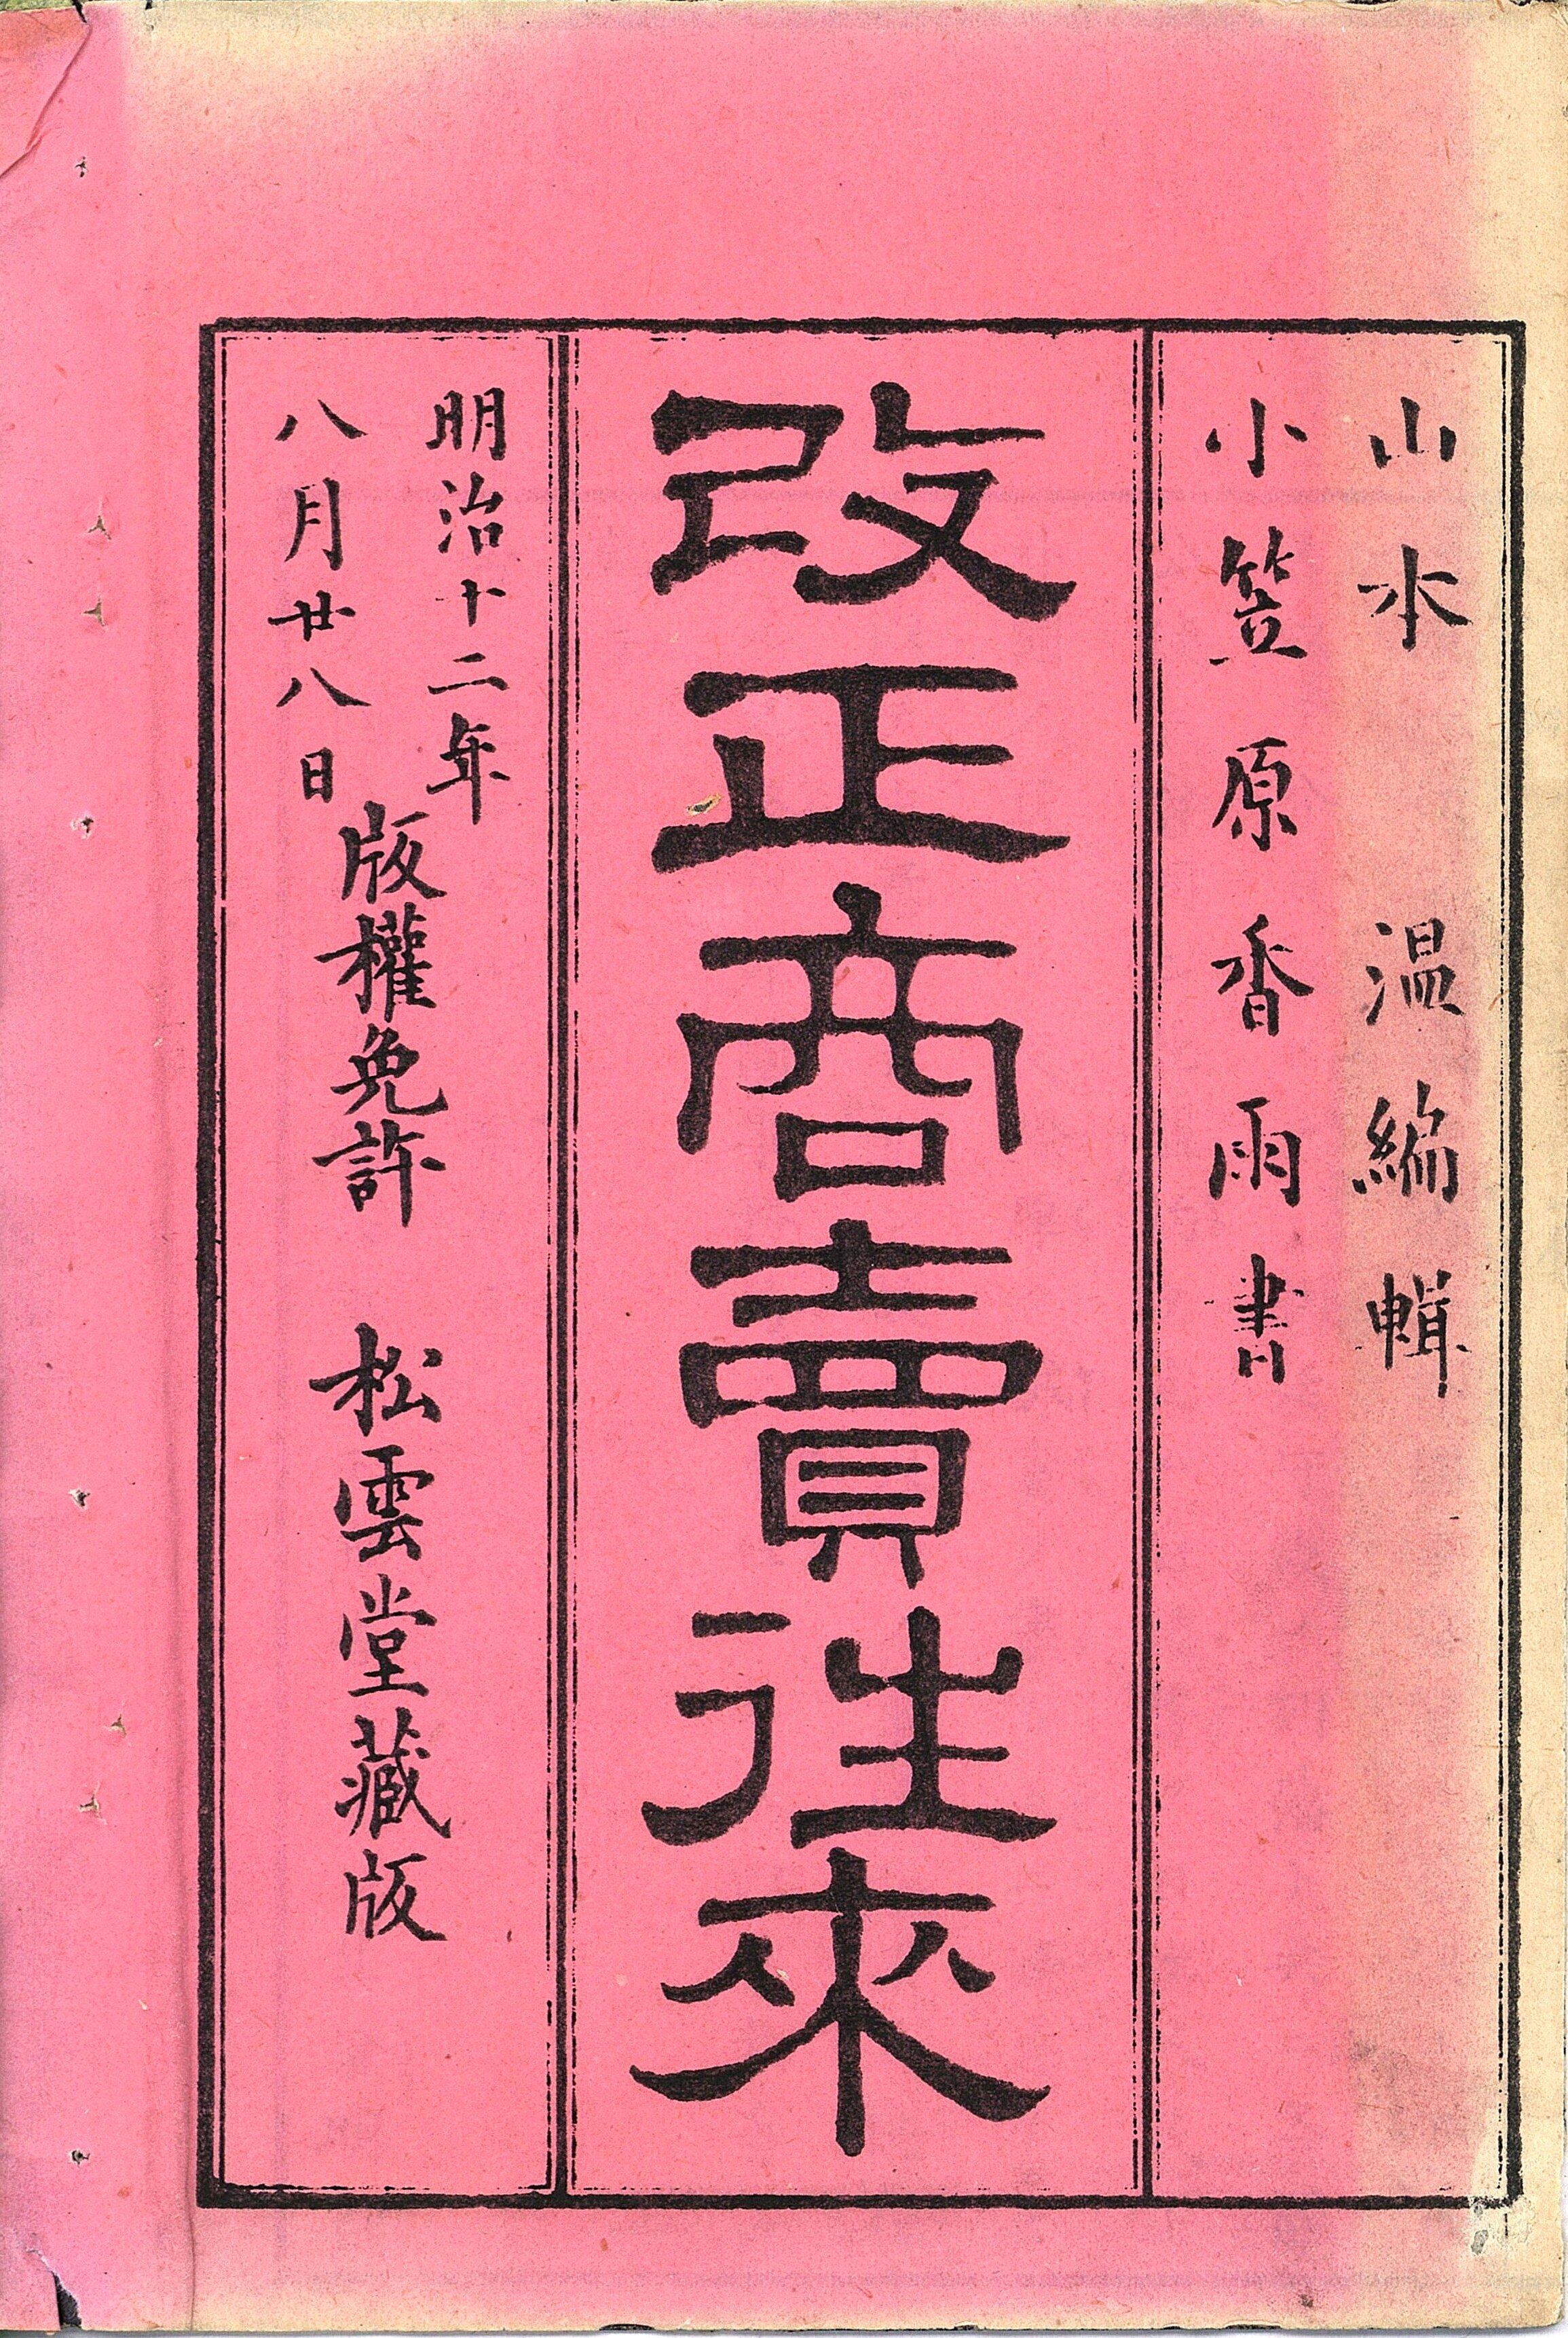 山本 温編輯
小笠原香雨書
改正商賣往來
明治十二年
八月廿八日
版權免許 松雲堂藏版